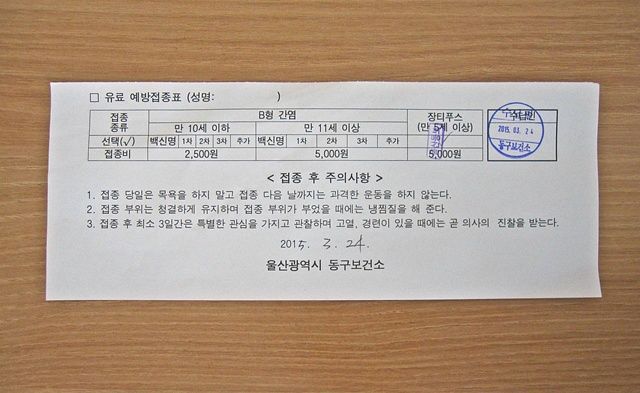 □ 유료 예방접종표 (성명: )
접종 종류 B형 간염 장티푸스 수납인
만 10세 이하 만 11세 이상 (만 5세 이상)
선택(√) 백신명 1차 2차 3차 추가 백신명 1차 2차 3차 추가
접종비 2,500원 5,000원 5,000원
2015. 03. 24
동구보건소
< 접종 후 주의사항 >
1. 접종 당일은 목욕을 하지 말고 접종 다음 날까지는 과격한 운동을 하지 않는다.
2. 접종 부위는 청결하게 유지하며 접종 부위가 부었을 때에는 냉찜질을 해 준다.
3. 접종 후 최소 3일간은 특별한 관심을 가지고 관찰하며 고열, 경련이 있을 때에는 곧 의사의 진찰을 받는다.
2015. 3. 24.
울산광역시 동구보건소